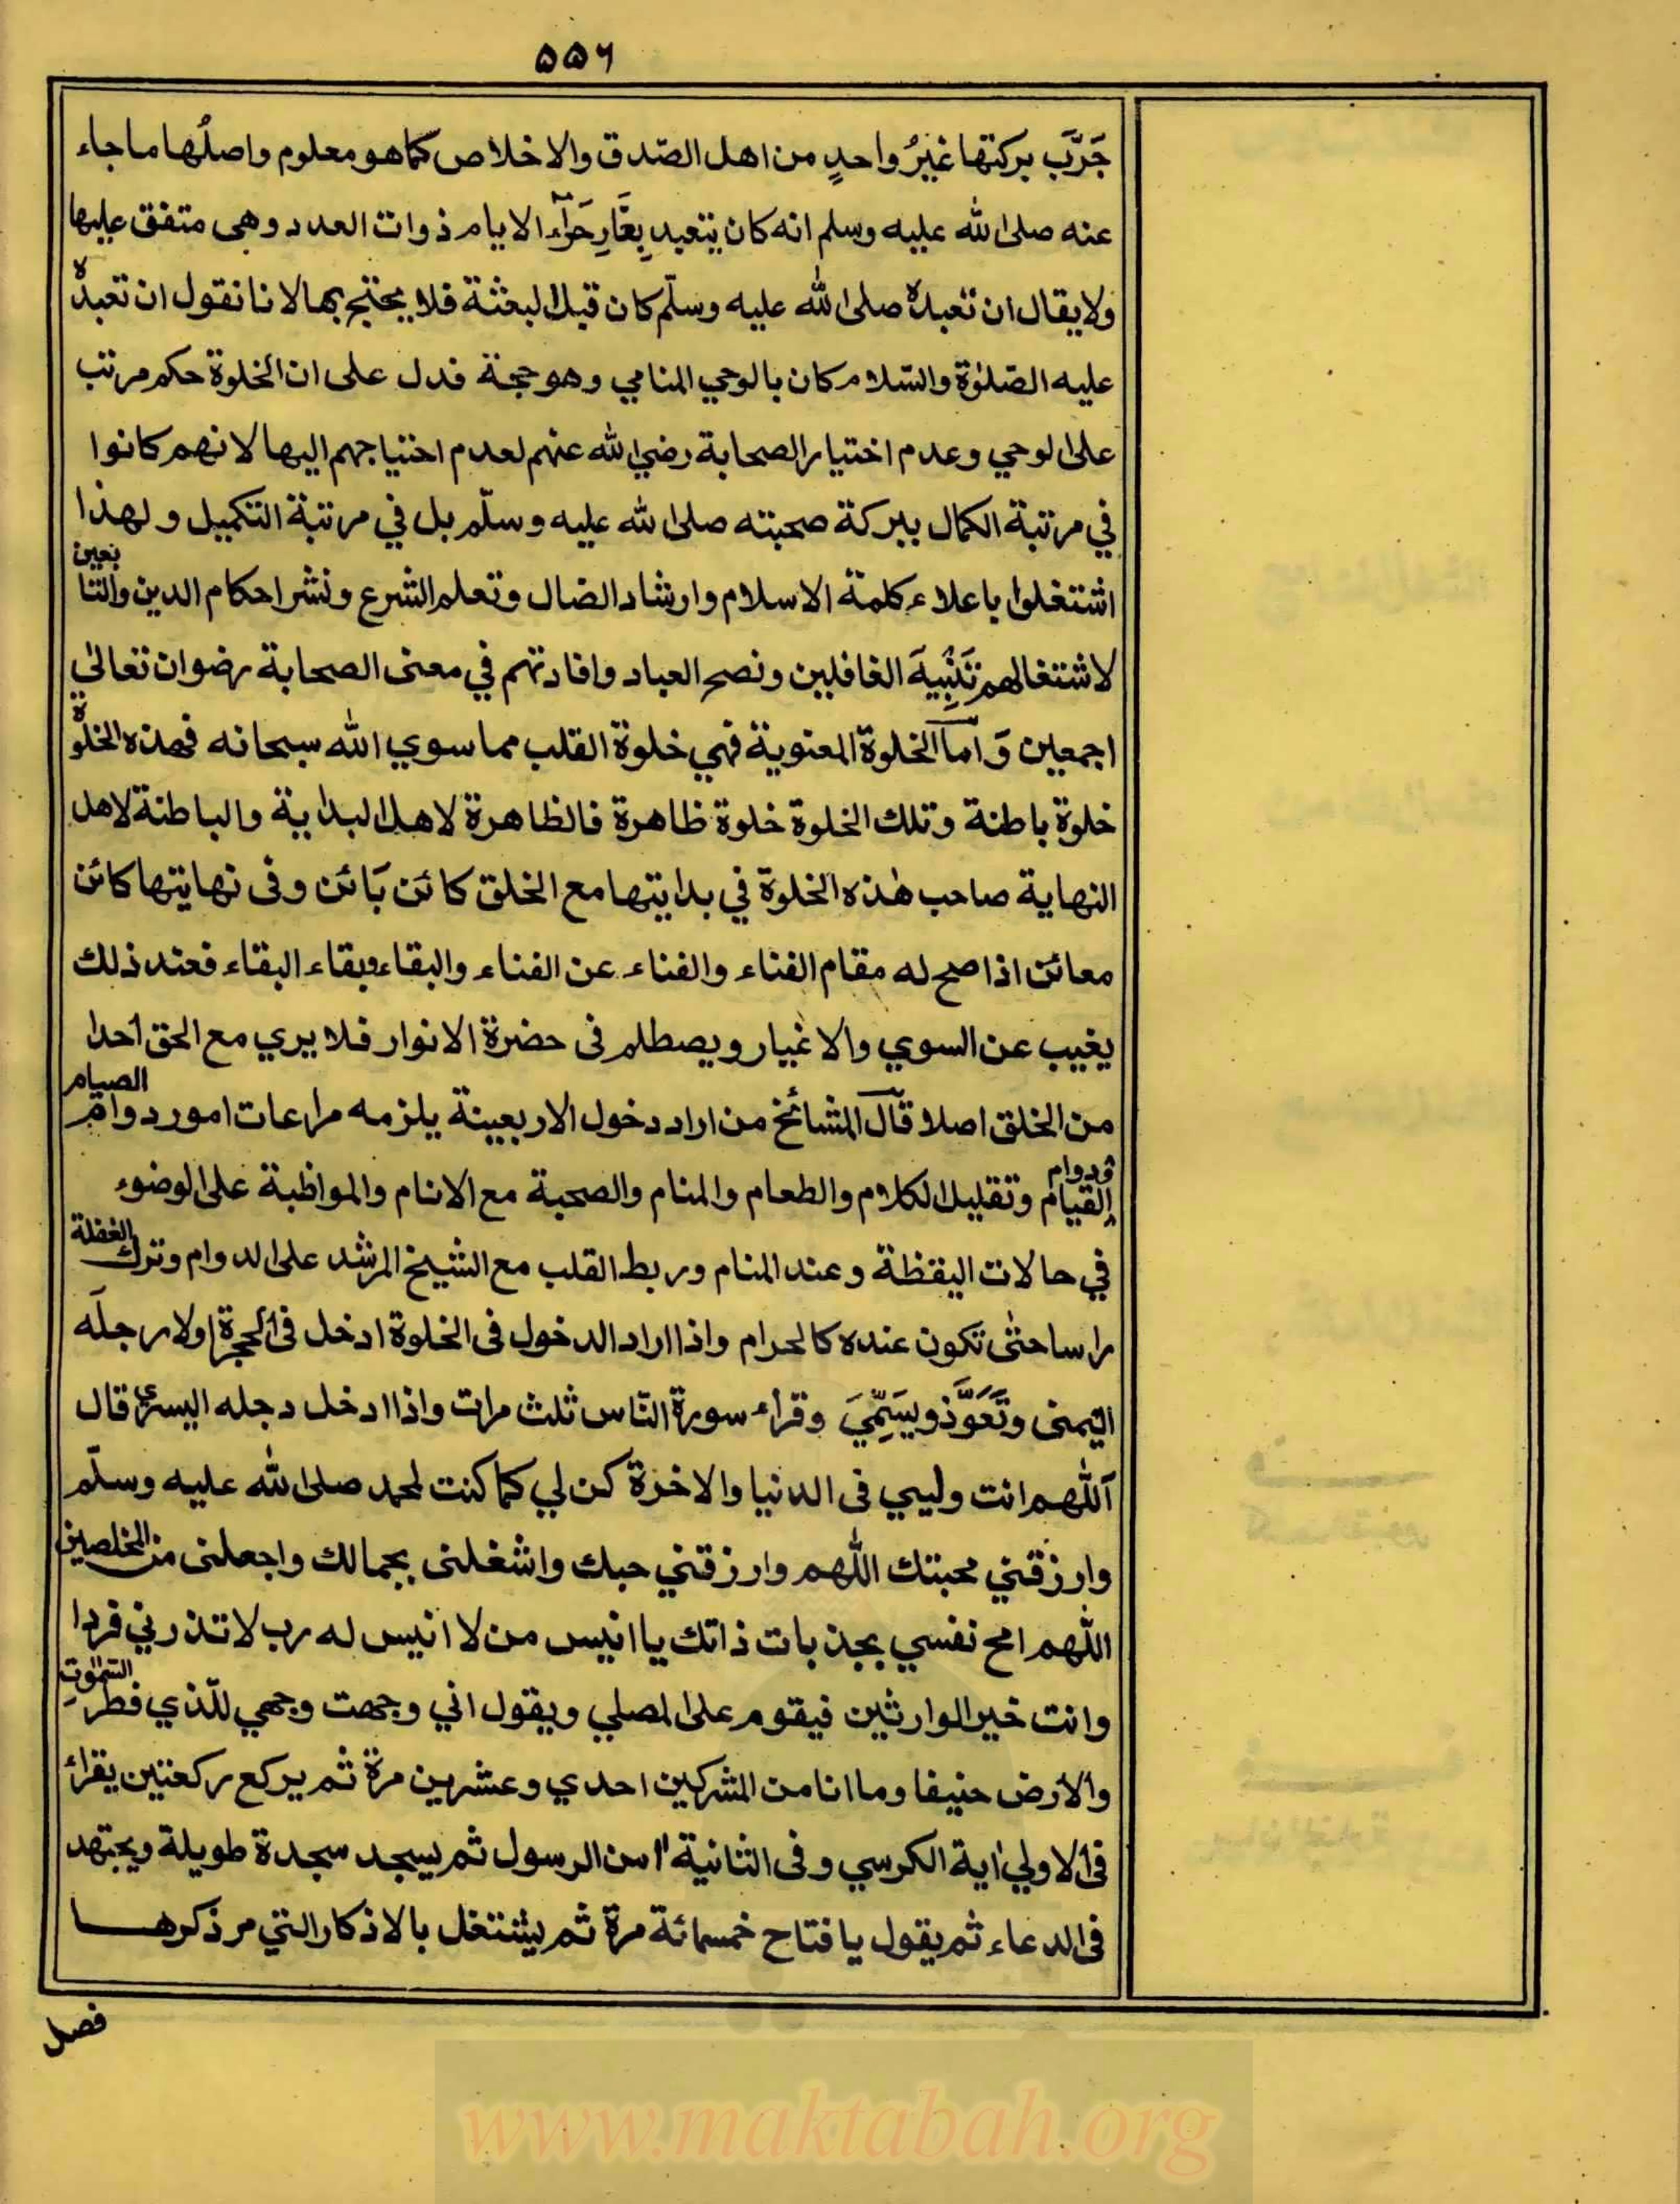 ۵۵۶
جَرَّبَ بركتها غيرُ واحدٍ من اهل الصّدق والاخلاص كما هو معلوم واصلُها ما جاء
عنه صلى الله عليه وسلم انه كان يتعبد بِغَارِ حَرَآء الايام ذوات العدد وهى متفق عليها
ولا يقال ان تعبده صلى الله عليه وسلّم كان قبل البعثة فلا يحتج بها لانا نقول ان تعبده
عليه الصّلوٰة والسّلام كان بالوحي المنامي وهو حجة فدل على ان الخلوة حكم مرتب
على الوحي وعدم اختيار الصحابة رضي الله عنهم لعدم احتياجهم اليها لانهم كانوا
في مرتبة الكمال ببركة صحبته صلى الله عليه وسلّم بل في مرتبة التكميل ولهذا
اشتغلوا باعلاء كلمة الاسلام وارشاد الضال وتعلم الشرع ونشر احكام الدين والتابعين
لاشتغالهم تَنْبِيهَ الغافلين ونصح العباد وافادتهم في معنى الصحابة رضوان تعالىٰ
اجمعين وَ امّا الخلوة المعنوية فهي خلوة القلب مما سوي الله سبحانه فهذه الخلوة
خلوة باطنة وتلك الخلوة خلوة ظاهرة فالظاهرة لاهل البداية والباطنة لاهل
النهاية صاحب هٰذه الخلوة في بدايتها مع الخلق كائن بَائن وفى نهايتها كائن
معائن اذا صح له مقام الفناء والفناء عن الفناء والبقاء وبقاء البقاء فعند ذلك
يغيب عن السوي والاغيار ويصطلم فى حضرة الانوار فلا يري مع الحق احدا
من الخلق اصلا قال المشائخ من اراد دخول الاربعينة يلزمه مراعات امور دوام الصيام
ودوام القيام وتقليل الكلام والطعام والمنام والصحبة مع الانام والمواظبة على الوضوء
في حالات اليقظة وعند المنام وربط القلب مع الشيخ المرشد على الدوام وترك الغفلة
راسا حتى تكون عنده كالحرام واذا اراد الدخول فى الخلوة ادخل فى الحجرة اولا رجلَه
اليمنى وتَعَوَّذ ويسَمِّيَ وقراء سورة النّاس ثلث مرات واذا ادخل رجله اليسرىٰ قال
اَللّٰهم انت وليي فى الدنيا والاخرة كن لي كما كنت لمحمد صلى الله عليه وسلّم
وارزقني محبتك اللّٰهم وارزقني حبك واشغلنى بجمالك واجعلنى من المخلصين
اللّٰهم امح نفسي بجذبات ذاتك يا انيس من لا انيس له رب لا تذرني فردا
وانت خير الوارثين فيقوم على المصلي ويقول اني وجهت وجهي للّذي فطر السّمٰوٰتِ
والارض حنيفا وما انا من المشركين احدي وعشرين مرة ثم يركع ركعتين يقرائ
فى الاولي اٰية الكرسي وفى الثانية اٰمن الرسول ثم يسجد سجدة طويلة ويجتهد
فى الدعاء ثم يقول يا فتاح خمسمائة مرة ثم يشتغل بالاذكار التي مر ذكرهـــا
فصل
www.maktabah.org